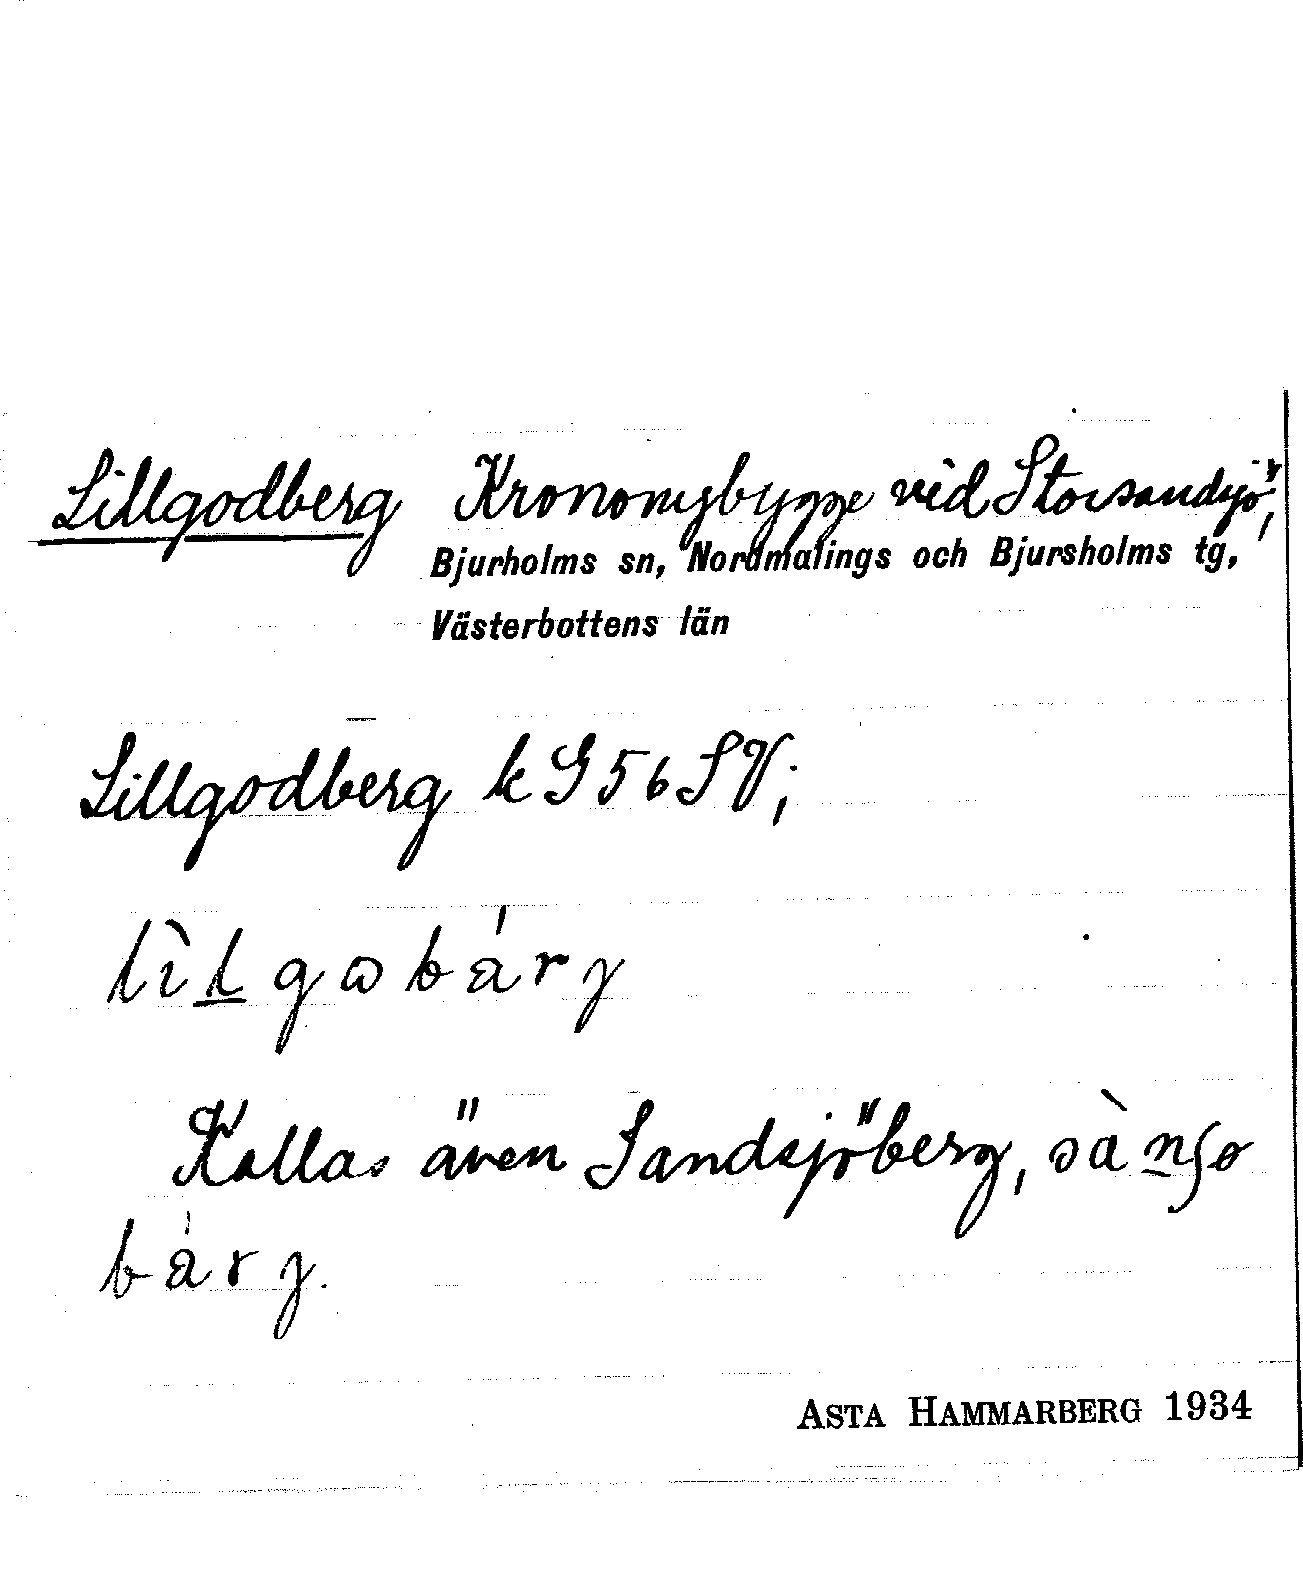 Lillgodberg Krononybygge vid Storsandsjö,
Bjurholms sn, Nordmalings och Bjursholms tg,
Västerbottens län
Lillgodberg k G 56 SV;
lìḻgωbárγ
Kallas även Sandsjöberg, sàṉʃo
bárγ.
ASTA HAMMARBERG 1934